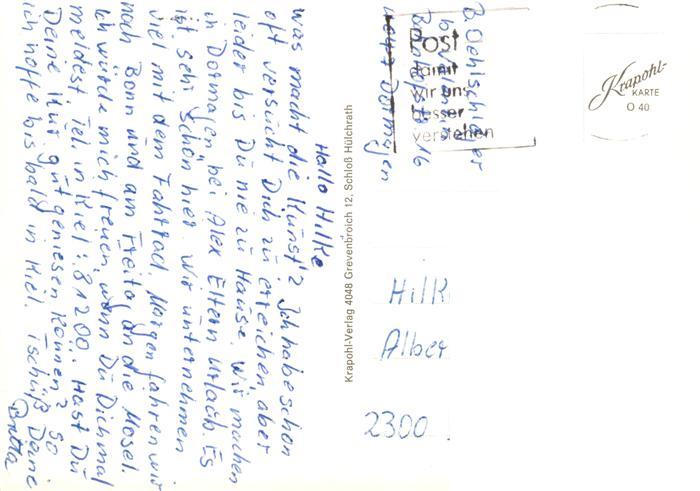 Hallo Hilke
was macht die Kunst? Ich habe schon
oft versucht Dich zu erreichen, aber
leider bis Du nie zu Hause. Wir machen
in Dormagen bei Alex Eltern Urlaub. Es
ist sehr schön hier. Wir unternehmen
viel mit dem Fahrrad. Morgen fahren wir
nach Bonn und am Freitag an die Mosel.
Ich würde mich freuen, wenn Du Dich mal
meldest. Tel. in Kiel: 81200. Hast Du
Deine Kur gut geniesen können? So
ich hoffe bis bald in Kiel. Tschüß Deine
Britta
Krapohl-Verlag 4048 Grevenbroich 12, Schloß Hülchrath
B. Oehlschläger
16
Dormagen
Post
damit
wir uns
besser
verstehen
Krapohl-
KARTE
O 40
Hilk
Alber
2300